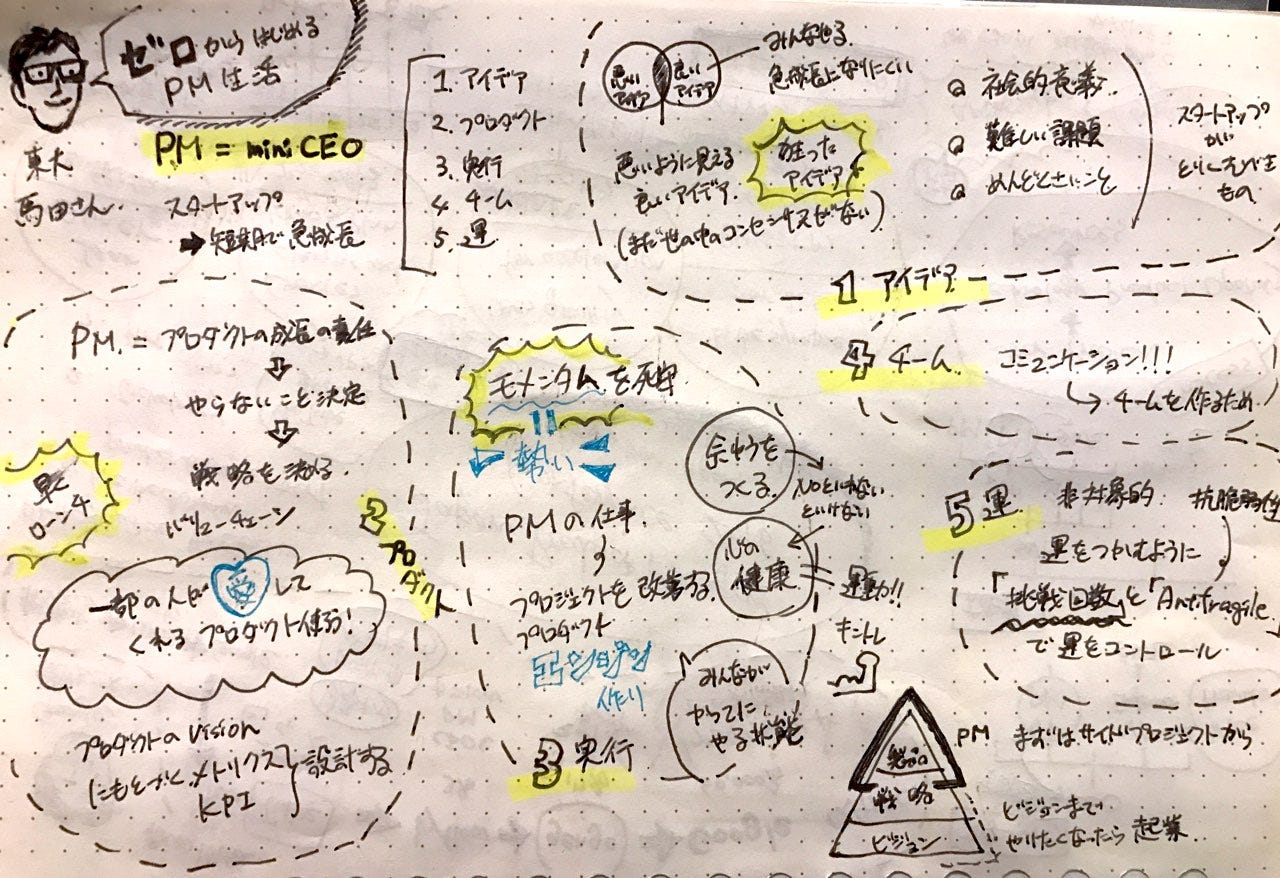 ゼロからはじめる
PM生活
東大
馬田さん
PM = mini CEO
スタートアップ
➡ 短期で急成長
1. アイデア
2. プロダクト
3. 実行
4 チーム
5. 運
悪い
アイデア
良い
アイデア
みんなやる
急成長になりにくい
悪いように見える
良いアイデア
狂った
アイデア
(まだ世の中のコンセンサスがない)
社会的意義
難しい課題
めんどくさいこと
スタートアップ
が
とりくむべき
もの
1 アイデア
4 チーム
コミュニケーション!!!
チームを作るため
PM = プロダクトの成長の責任
やらないこと決定
戦略を決める
バリューチェーン
早く
ローンチ
一部の人が愛して
くれるプロダクト作る!
プロダクトのvision
にもとづくメトリクス
KPI
設計する
2 プロダクト
モメンタムを死守
勢い
PMの仕事
プロジェクトを改善する
プロダクト
作り
3 実行
余ゆうを
つくる
NOといわない
といけない
心の
健康
運動!!
キントレ
みんなが
かってに
やる状態
5 運
非対象的
抗脆弱性
運をつかむように
「挑戦回数」と「Antifragile」
で運をコントロール
製品
戦略
ビジョン
PM
まずはサイドプロジェクトから
ビジョンまで
やりたくなったら起業